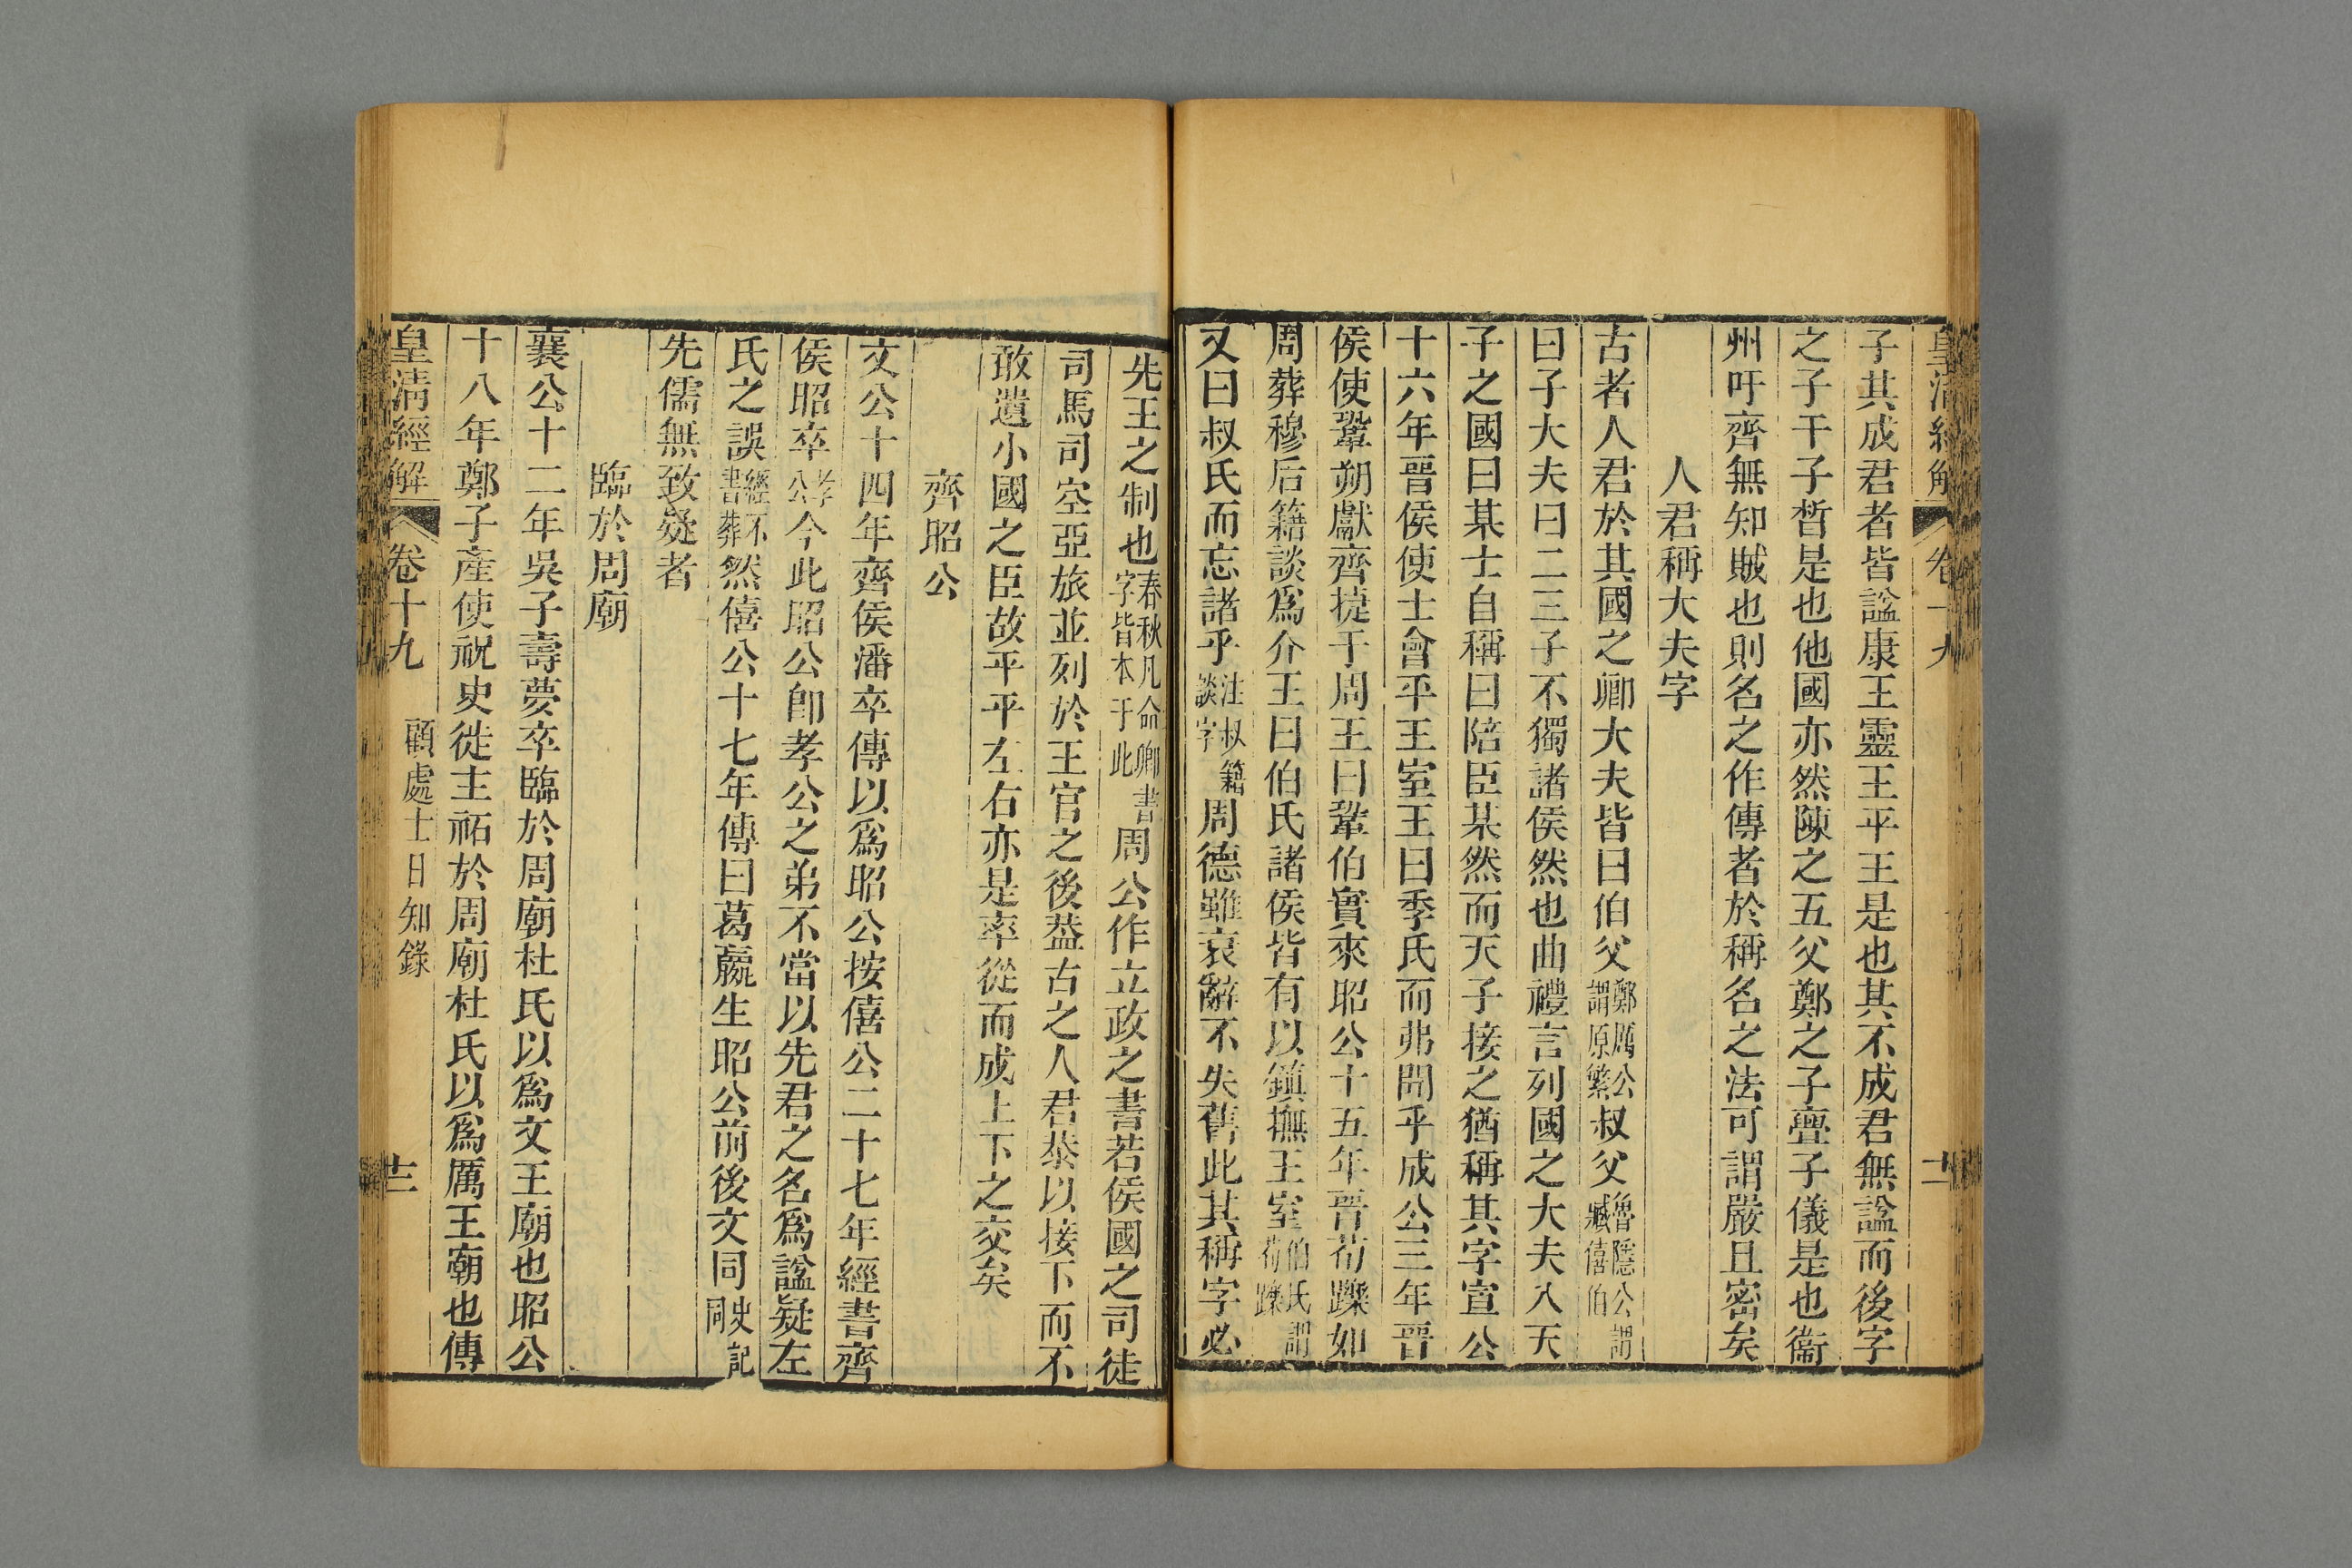 皇清經解 卷十九 十二
子其成君者皆謚康王靈王平王是也其不成君無謚而後字
之子干子晳是也他國亦然陳之五父鄭之子亹子儀是也衞
州吁齊無知賊也則名之作傳者於稱名之法可謂嚴且密矣
人君稱大夫字
古者人君於其國之卿大夫皆曰伯父鄭厲公謂原繁叔父魯隱公謂臧僖伯
曰子大夫曰二三子不獨諸侯然也曲禮言列國之大夫入天
子之國曰某士自稱曰陪臣某然而天子接之猶稱其字宣公
十六年晉侯使士會平王室王曰季氏而弗聞乎成公三年晉
侯使鞏朔獻齊捷于周王曰鞏伯實來昭公十五年晉荀躒如
周葬穆后籍談爲介王曰伯氏諸侯皆有以鎮撫王室伯氏謂荀躒
又曰叔氏而忘諸乎注叔籍談字周德雖衰辭不失舊此其稱字必
先王之制也春秋凡命卿書字皆本于此周公作立政之書若侯國之司徒
司馬司空亞旅並列於王官之後葢古之人君恭以接下而不
敢遺小國之臣故平平左右亦是率從而成上下之交矣
齊昭公
文公十四年齊侯潘卒傳以爲昭公按僖公二十七年經書齊
侯昭卒孝公今此昭公卽孝公之弟不當以先君之名爲謚疑左
氏之誤經不書葬然僖公十七年傳曰葛嬴生昭公前後文同史記同
先儒無致疑者
臨於周廟
襄公十二年吳子壽夢卒臨於周廟杜氏以爲文王廟也昭公
十八年鄭子產使祝史徙主祏於周廟杜氏以爲厲王廟也傳
皇清經解 卷十九 顧處士日知錄 十二